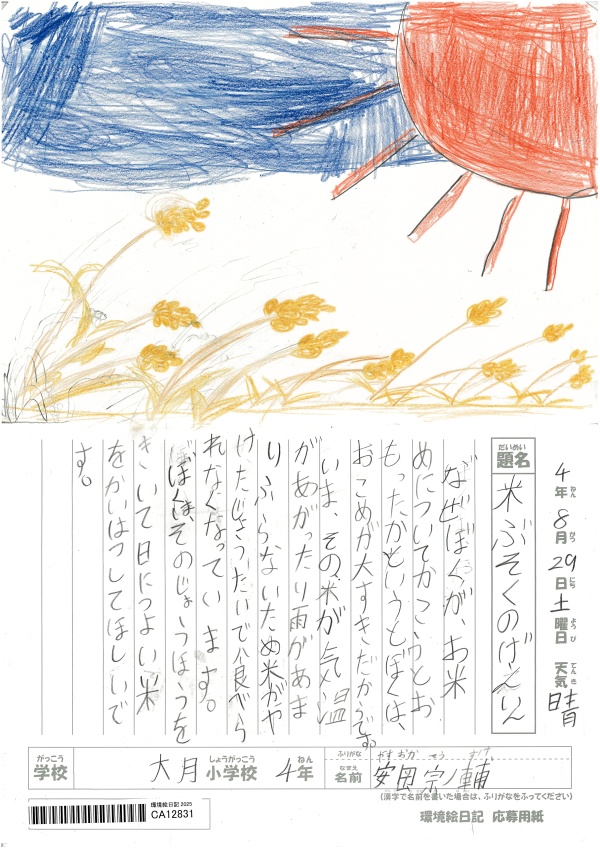 4年8月29日土曜日 天気 晴
ねん がつ にち ようび てんき
だいめい
題名 米ぶそくのげんいん
なぜぼくが、お米
めについてかこうとお
もったかというとぼくは、
おこめが大すきだからです。
いま、その米が気温
があがったり雨があま
りふらないため米がや
けたじょうたいで食べら
れなくなっています。
ぼくは、そのじょうほうを
きいて日につよい米
をかいはつしてほしいで
す。
がっこう
学校
大月 小学校 4年
しょうがっこう ねん
ふりがな やすおか そう すけ
なまえ
名前 安田 宗ノ輔
(漢字で名前を書いた場合は、ふりがなをふってください)
環境絵日記 2025
CA12831
環境絵日記 応募用紙